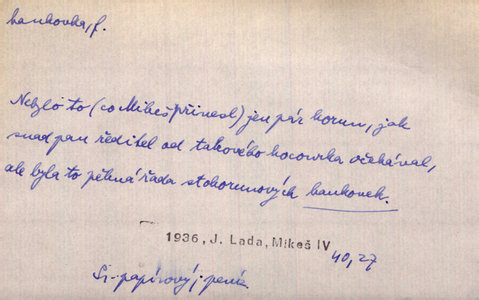 bankovka, f.
Nebylo to (co Mikeš přinesl) jen pár korun, jak
snad pan ředitel od takového kocourka očekával,
ale byla to pěkná řada stokorunových bankovek.
1936, J. Lada, Mikeš IV
40, 27
papírový peníz